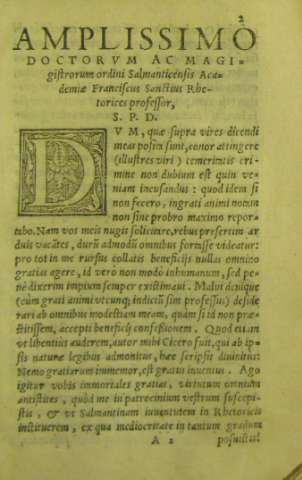 2
AMPLISSIMO
DOCTORVM AC MAGI-
gistrorum ordini Salmanticēsis Aca-
demiæ Franciscus Sanctius Rhe-
torices professor,
S. P. D.
DVM, quæ supra vires dicendi
meas posita sunt, conor attingere
(illustres viri) temeritatis cri-
mine non dubium est quin ve-
niam incusandus: quod idem si
non fecero, ingrati animi notam
non sine probro maximo repor-
tabo. Nam vos meis nugis solicitare, rebus præsertim ar
duis vacātes, durū admodū omnibus fortasse videatur:
pro tot in me rursus collatis beneficijs nullas omnino
gratias agere, id vero non modò inhumanum, sed pe-
nè dixerim impium semper existimaui. Malui denique
(cùm grati animi vtcunq; indiciū sim professus) deside
rari ab omnibus modestiam meam, quàm si id non præ-
stitissem, accepti beneficij confessionem. Quod etiam
vt libentius auderem, autor mihi Cicero fuit, qui ab ip-
sis naturæ legibus admonitus, hæc scripsit diuinitus:
Nemo gratiarum immemor, est gratus inuentus. Ago
igitur vobis immortales gratias, virtutum omnium
antistites, quòd me in patrocinium vestrum suscepi-
stis, & vt Salmantinam iuuentutem in Rhetoricis
instituerem, ex qua mediocritate in tantum gradum
A 2 posuistis: